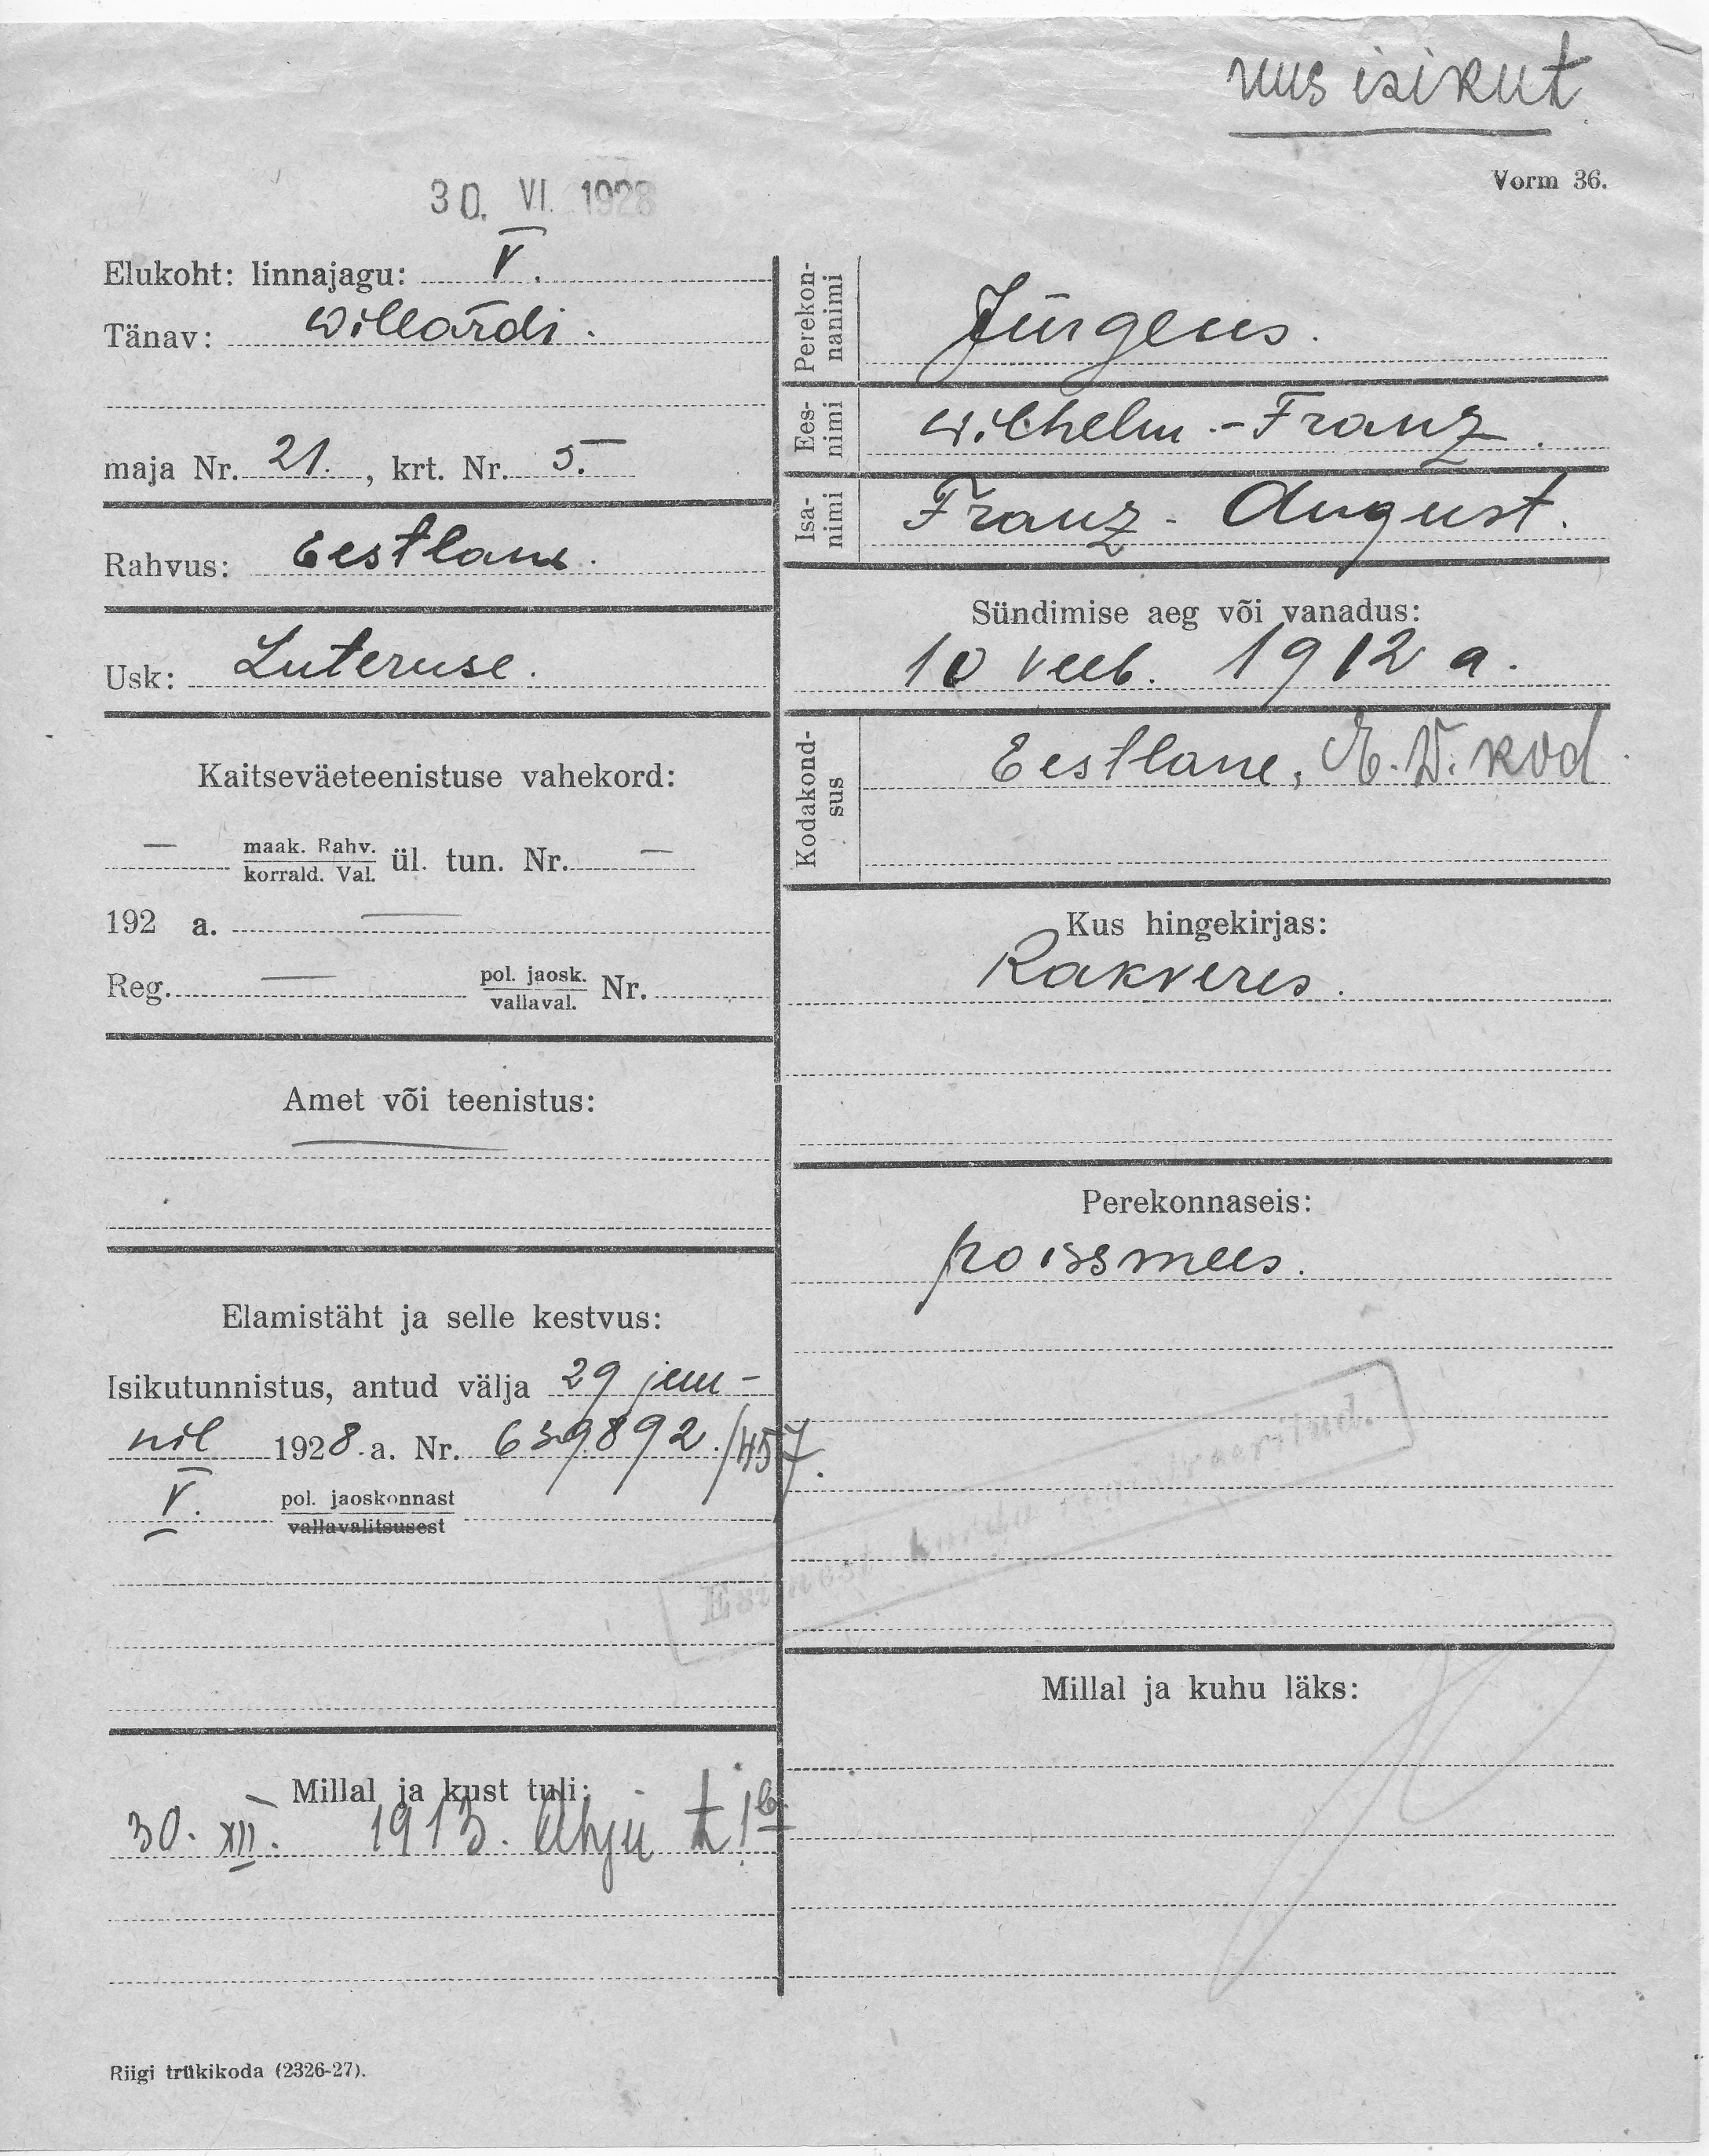 uus isikut
Vorm 36.
30. VI. 1928
Elukoht: linnajagu: V.
Tänav: Willardi.
maja Nr. 21., krt. Nr. 5.
Rahvus: Eestlane.
Usk: Luteruse.
Kaitseväeteenistuse vahekord:
— maak. Rahv.
korrald. Val. ül. tun. Nr. —
192 a. —
Reg. — pol. jaosk.
vallaval. Nr.
Amet või teenistus:
—
Elamistäht ja selle kestvus:
Isikutunnistus, antud välja 29 juu-
nil 1928. a. Nr. 639892./457.
V. pol. jaoskonnast
vallavalitsusest
Millal ja kust tuli:
30. XII. 1913. Ahju t 1b
Riigi trükikoda (2326-27).
Perekon-
nanimi
Jürgens.
Ees-
nimi
Wilhelm-Franz.
Isa-
nimi
Franz-August.
Sündimise aeg või vanadus:
10 veeb. 1912 a.
Kodakond-
sus
Eestlane, E.V. kod.
Kus hingekirjas:
Rakveres.
Perekonnaseis:
poissmees.
Esimest korda registreeritud.
Millal ja kuhu läks: